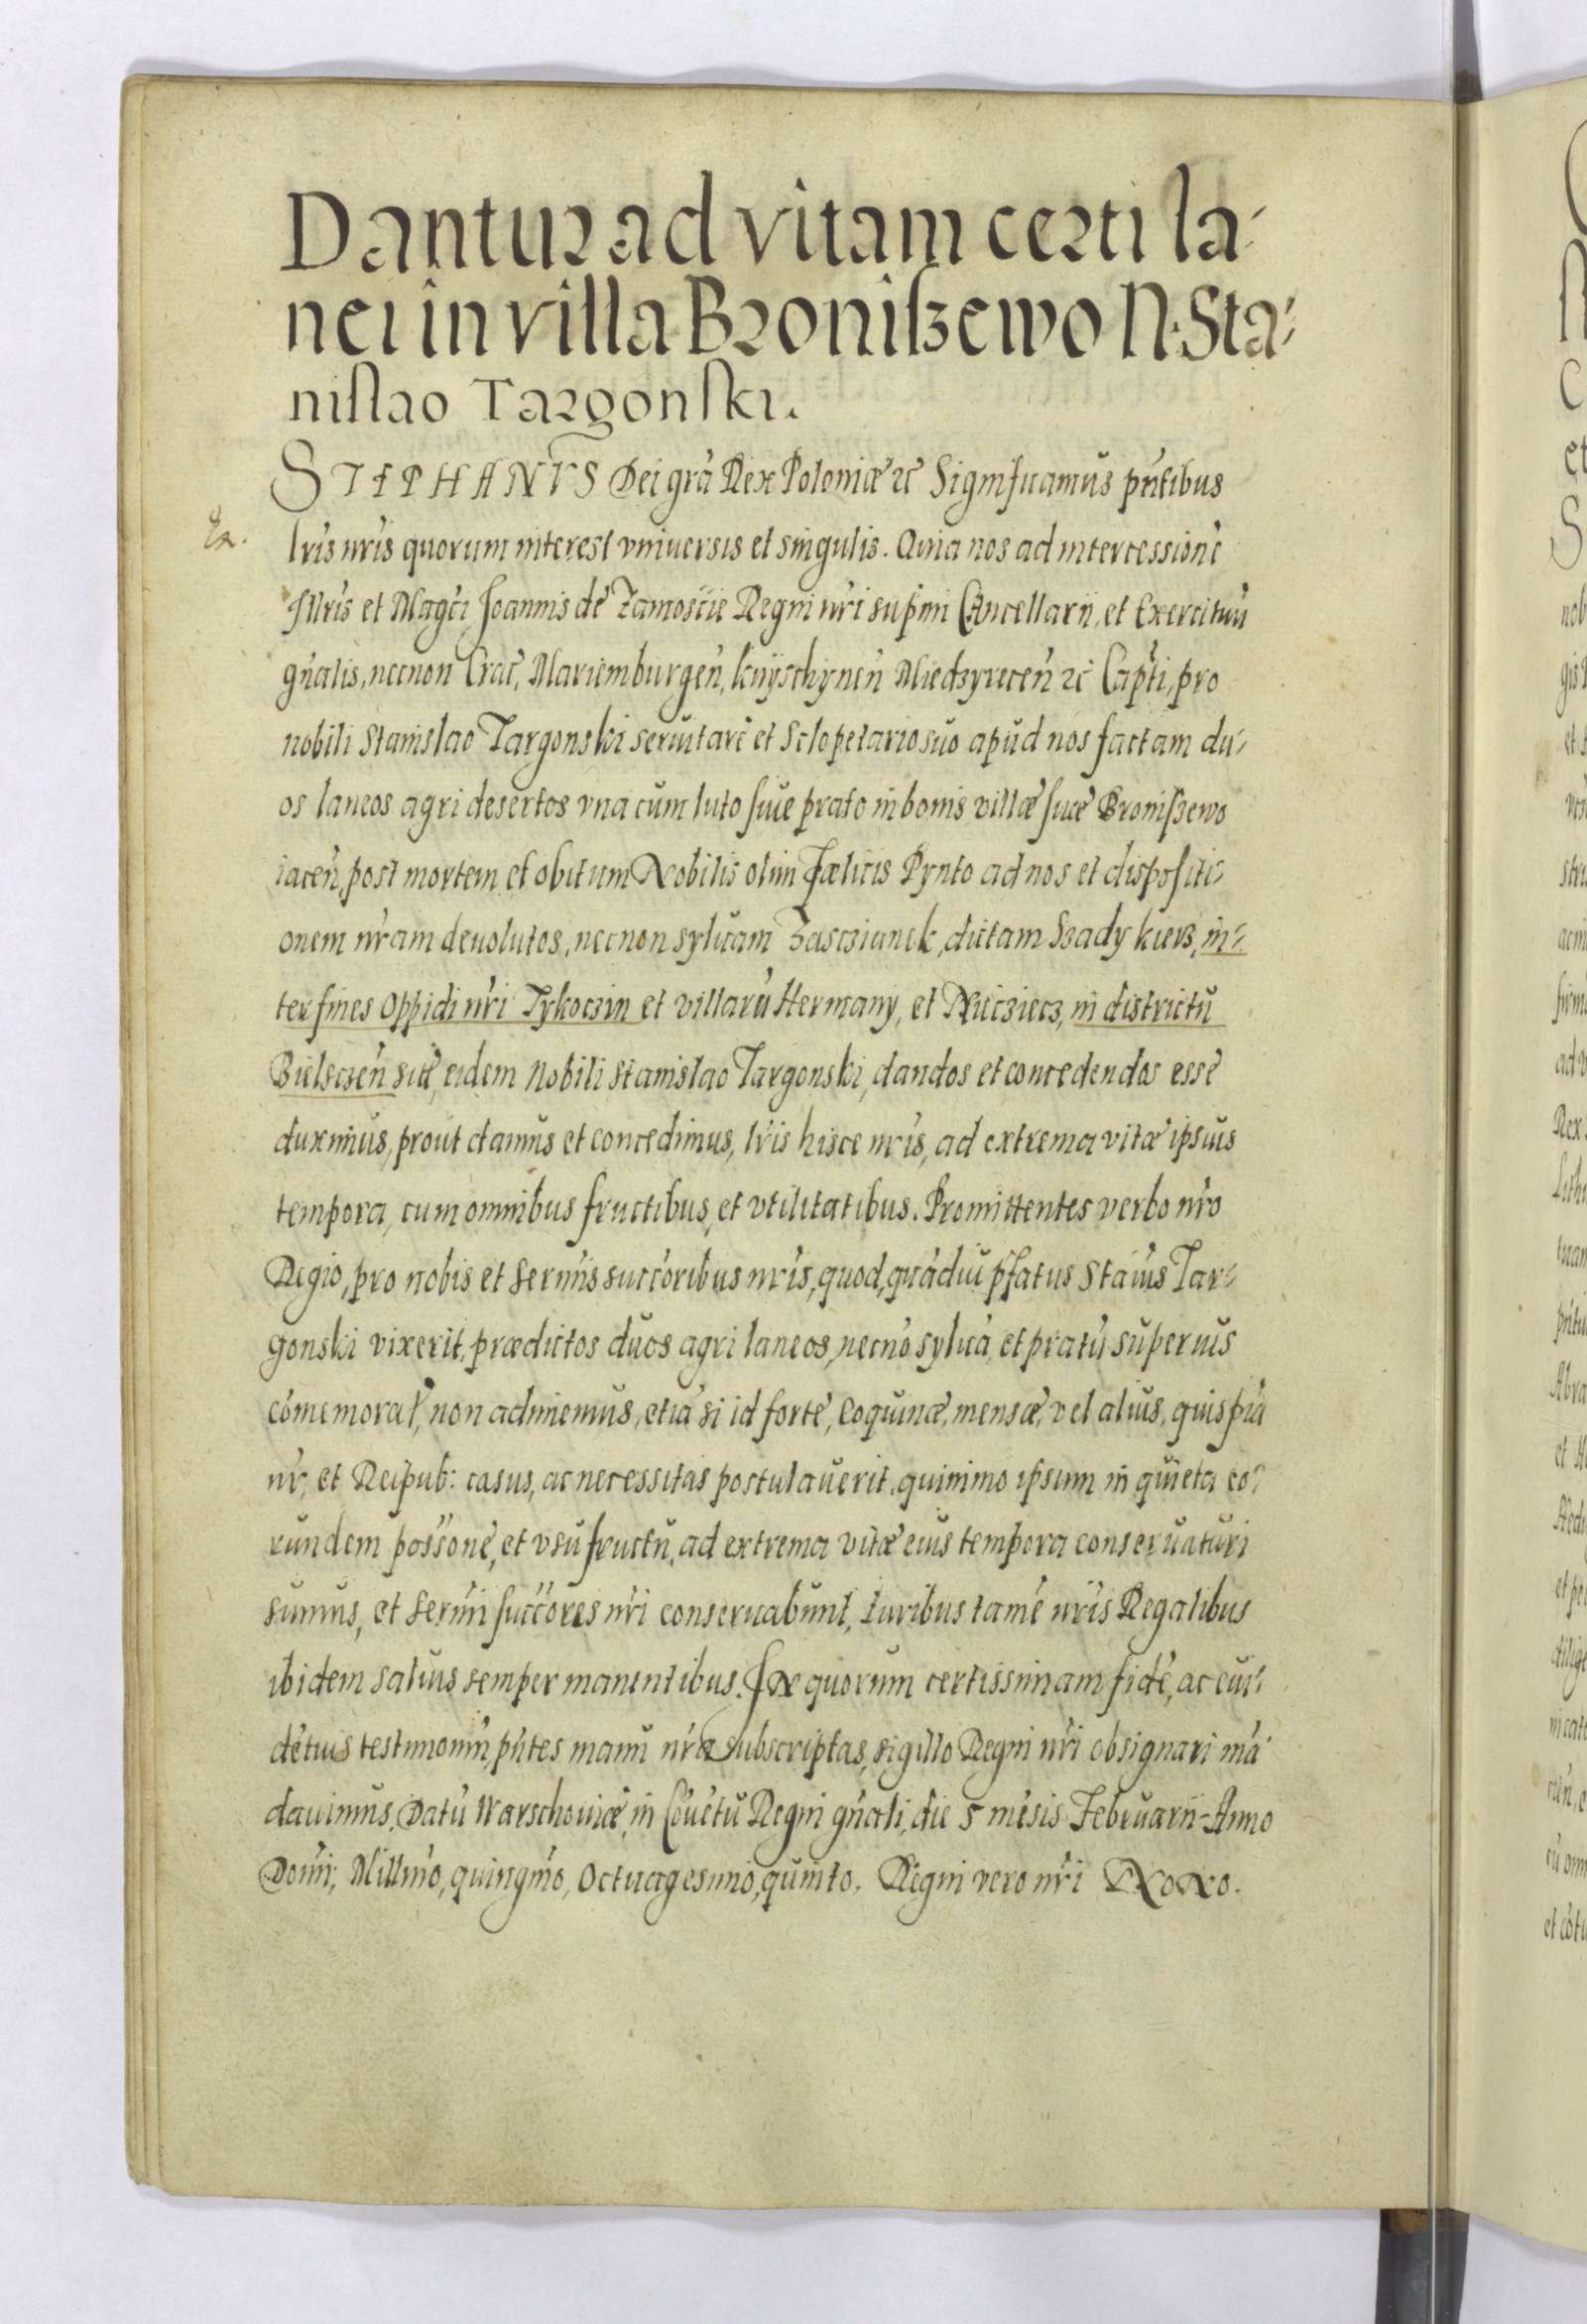 Dantur ad vitam certi la-
nei in villa Broniszewo N. Sta-
nislao Targonski.
STEPHANVS Dei gra Rex Poloniæ etc Significamus pntibus
lris nris quorum interest vniuersis et singulis. Quia nos ad intercessione
Illris et Magci Joannis de Zamoscie Regni nri supmi Cancellarii, et Exercituu
gnalis, necnon Crac, Mariemburgen, knyschynen Miedzyrecen etc Capti, pro
nobili Stanislao Targonski seruitore et Sclopetario suo apud nos factam du-
os laneos agri desertos vna cum luto siue prato in bonis villæ suæ Broniszewo
iacen, post mortem et obitum Nobilis olim Fælicis Pynto ad nos et dispositi-
onem nram deuolutos, necnon syluam Zasczianek, dictam Szady kierz, in-
ter fines Oppidi nri Tykoczin et villaru Hermany, et Nieciecz, in districtu
Bielscen site, eidem Nobili Stanislao Targonski, dandos et concedendos esse
duximus, prout damus et concedimus, lris hisce nris, ad extrema vitæ ipsius
tempora, cum omnibus fructibus, et vtilitatibus. Promittentes verbo nro
Regio, pro nobis et Sermis succoribus nris, quod, quadiu pfatus Staius Tar-
gonski vixerit, prædictos duos agri laneos, necno sylua, et pratu superius
comemorat, non adimemus, etia si id forte, Coquinæ, mensæ, vel alius, quispia
nr, et Reipub: casus, ac necessitas postulauerit. quinimo ipsum in quieta eo-
rundem possone, et vsufructu, ad extrema vitæ eius tempora conseruaturi
sumus, et Sermi succores nri conseruabunt, Iuribus tame nris Regalibus
ibidem saluis semper manentibus. In quorum certissimam fide, ac eui-
detius testimonin, pntes manu nra subscriptas, sigillo Regni nri obsignari ma
dauimus. Datu Warschouiæ, in Couetu Regni gnali, die 5 mesis Februarii Anno
Domi, Millmo, quingmo, Octuagesimo, quinto. Regni vero nri Nono.